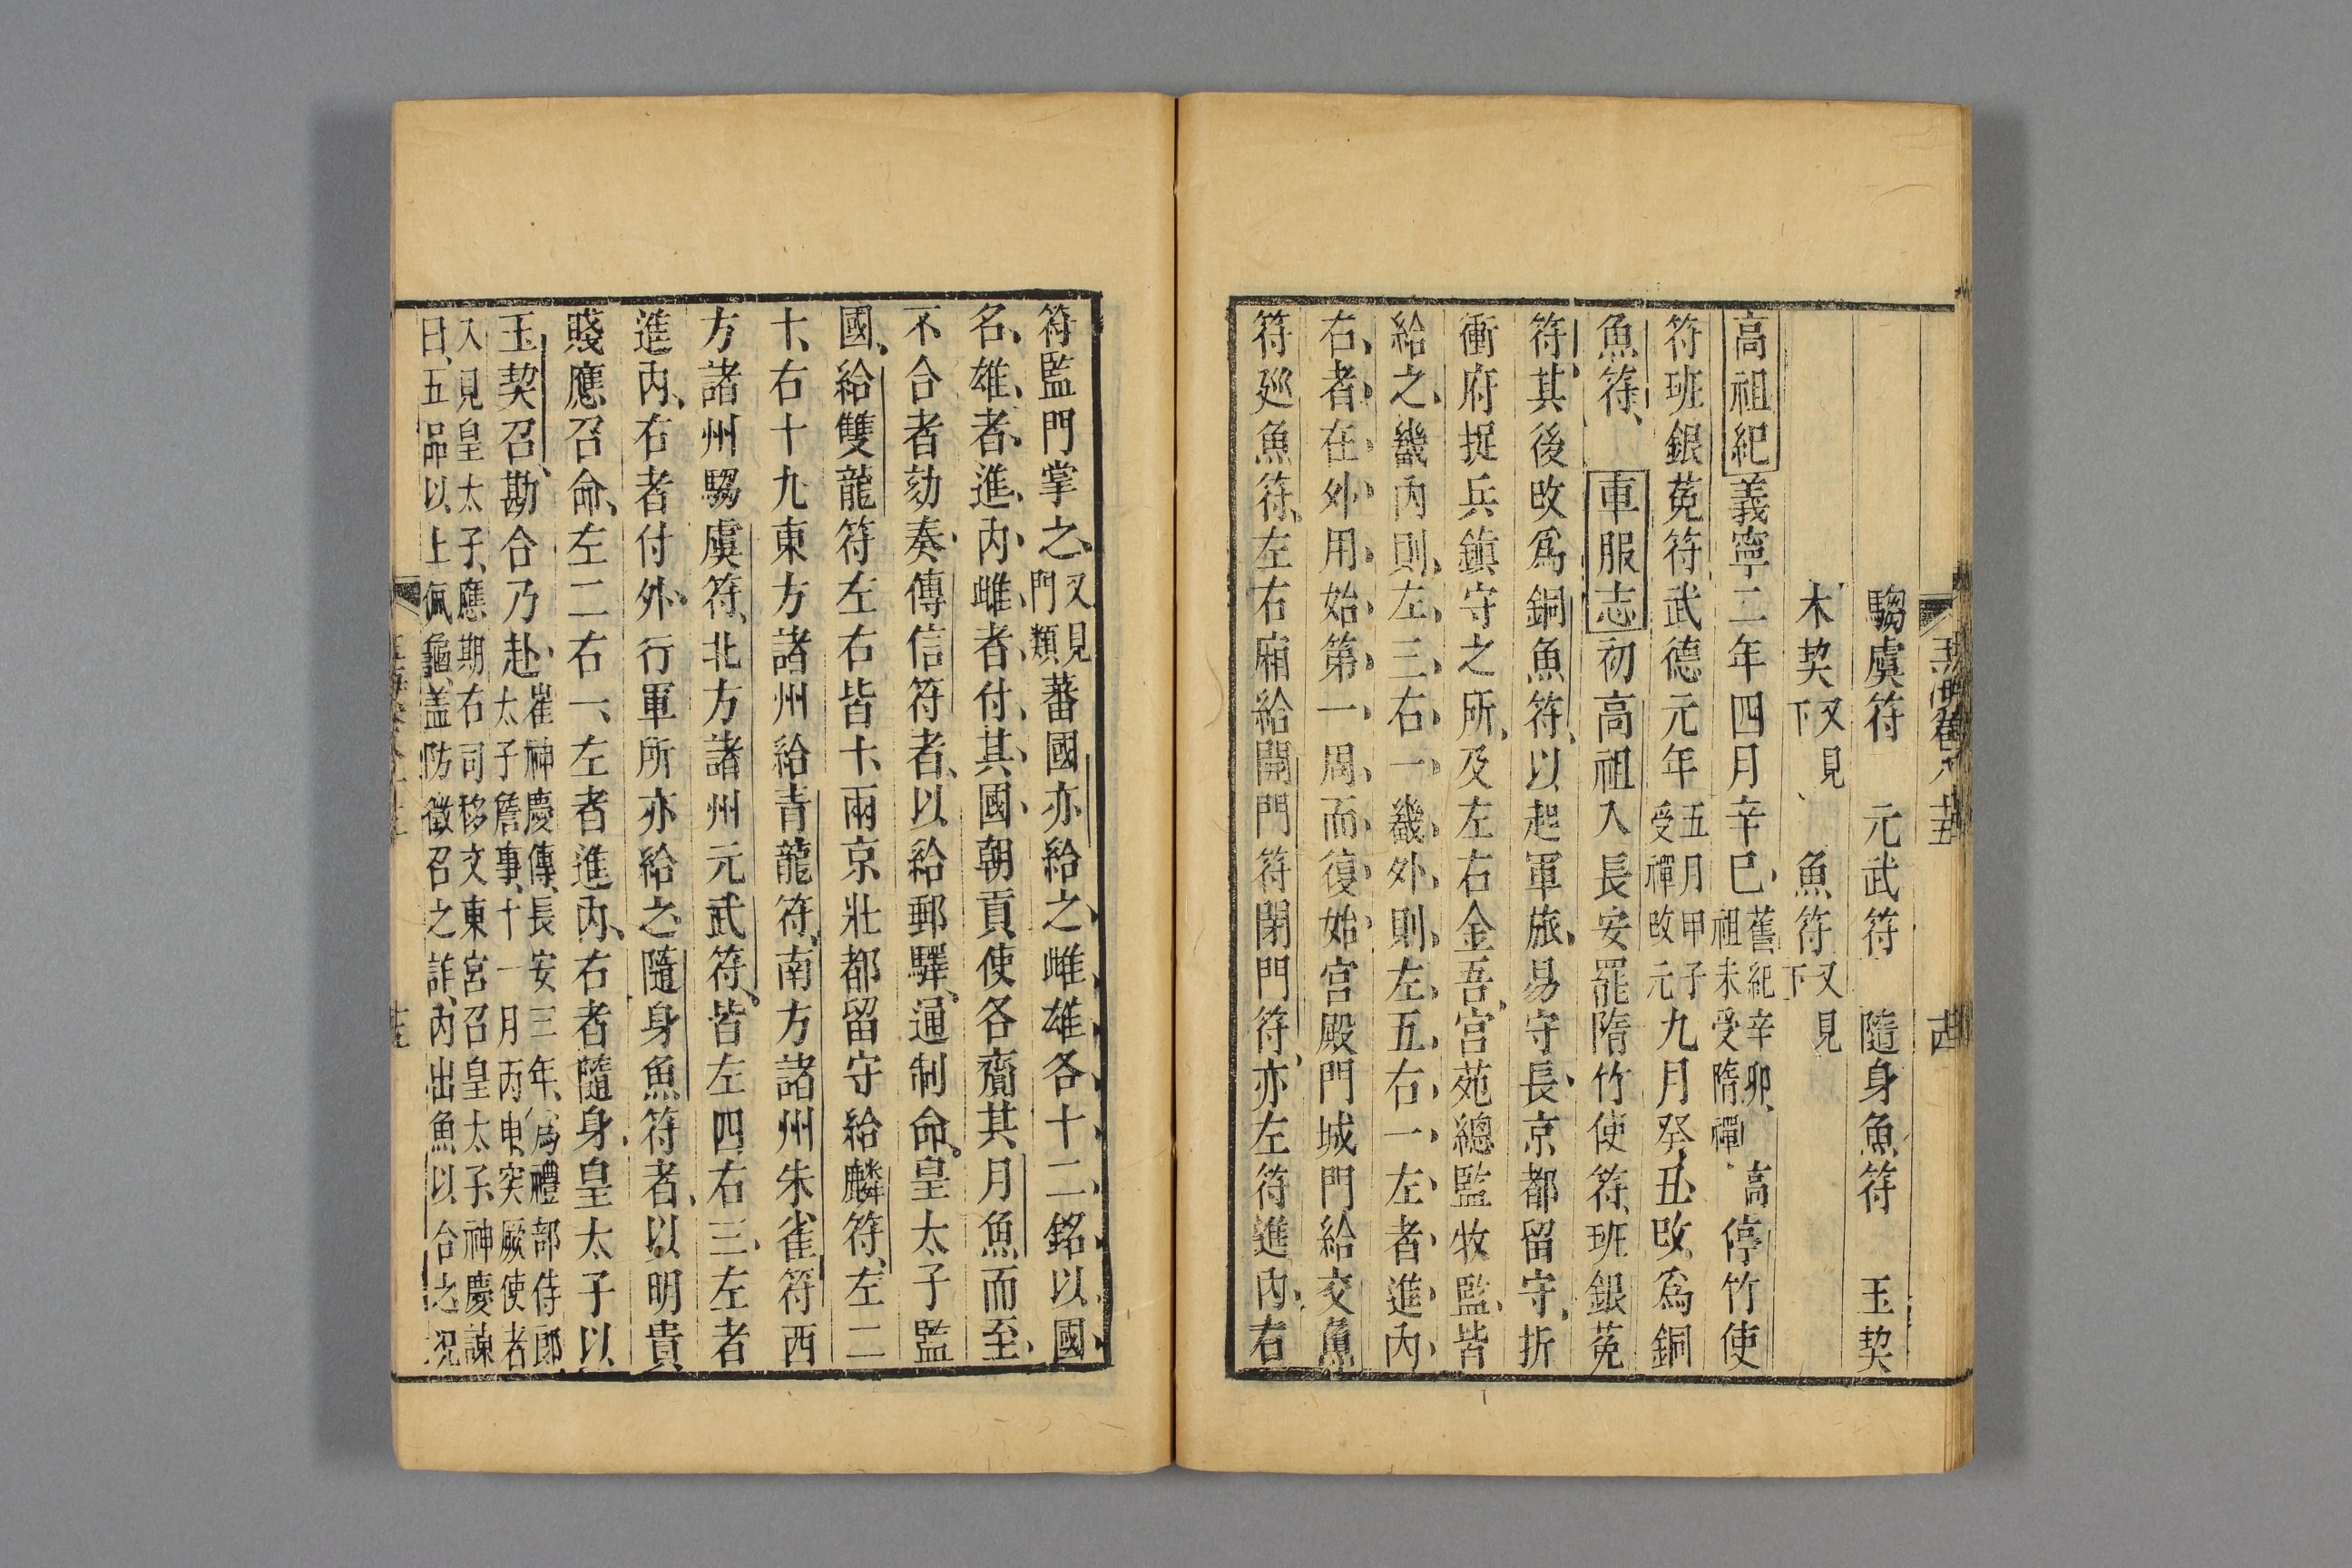 騶虞符　元武符　隨身魚符　玉契
木契又見下　魚符又見下
高祖紀義寧二年四月辛巳舊紀辛卯高祖未受隋禪停竹使
符班銀菟符武德元年五月甲子受禪改元九月癸丑改爲銅
魚符　車服志初高祖入長安罷隋竹使符班銀菟
符其後改爲銅魚符以起軍旅易守長京都留守折
衝府捉兵鎮守之所及左右金吾宮苑總監牧監皆
給之畿內則左三右一畿外則左五右一左者進內
右者在外用始第一周而復始宮殿門城門給交魚
符廵魚符左右廂給開門符閉門符亦左符進內右
符監門掌之又見門類蕃國亦給之雌雄各十二銘以國
名雄者進內雌者付其國朝貢使各齎其月魚而至
不合者劾奏傳信符者以給郵驛通制命皇太子監
國給雙龍符左右皆十兩京壯都留守給麟符左二
十右十九東方諸州給青龍符南方諸州朱雀符西
方諸州騶虞符北方諸州元武符皆左四右三左者
進內右者付外行軍所亦給之隨身魚符者以明貴
賤應召命左二右一左者進內右者隨身皇太子以
玉契召勘合乃赴崔神慶傳長安三年爲禮部侍郎太子詹事十一月丙申突厥使者
入見皇太子應期右司移文東宮召皇太子神慶諫
曰五品以上佩龜蓋防徵召之詐內出魚以合之況